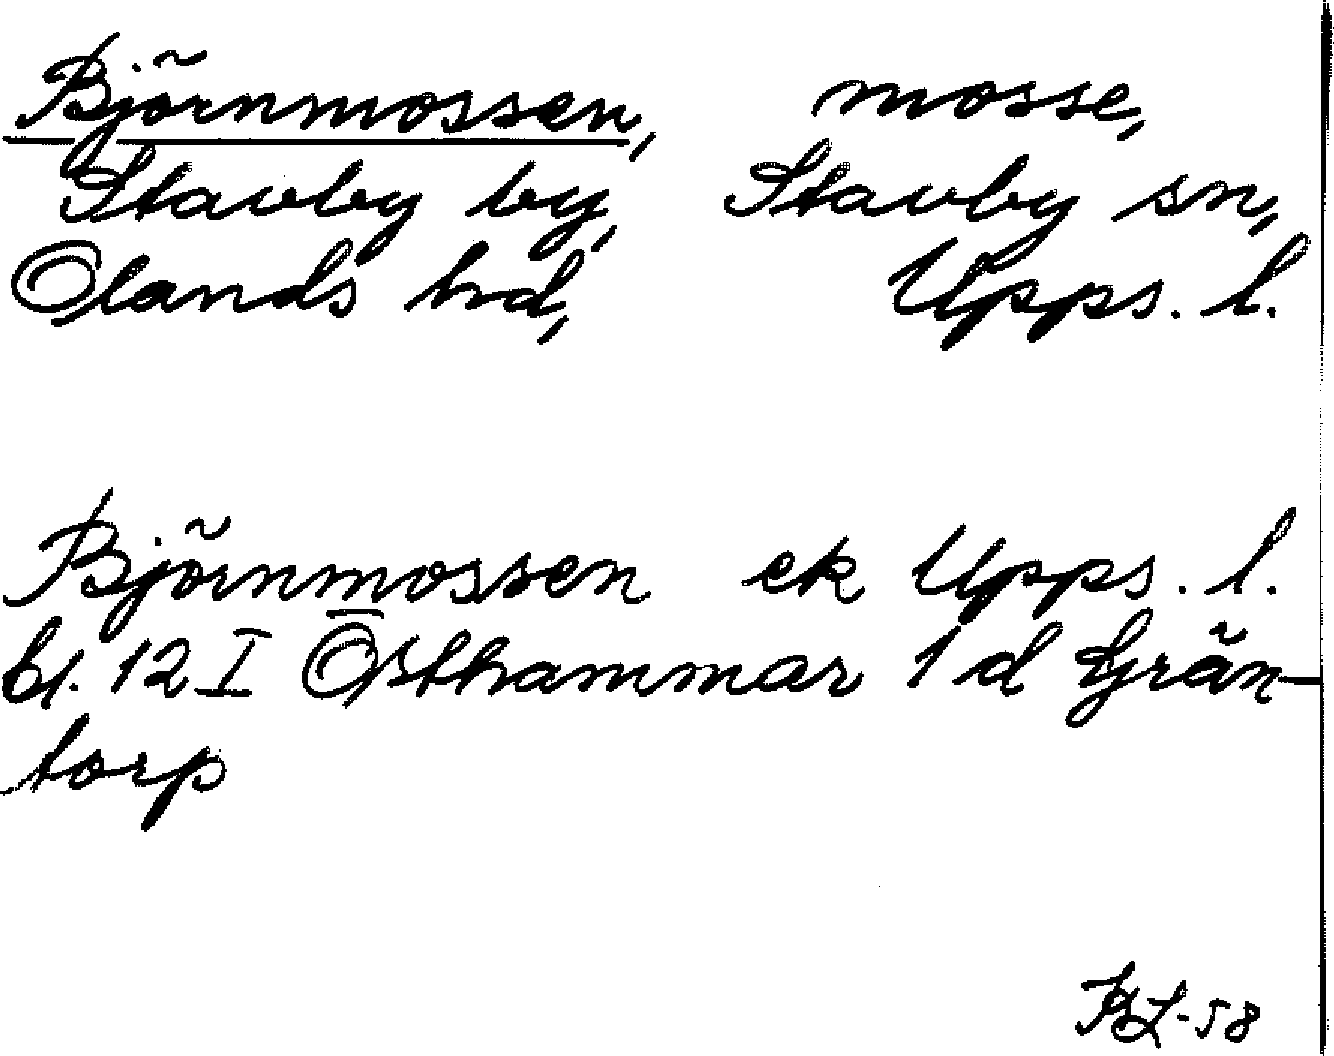 Björnmossen, mosse,
Stavby by, Stavby sn,
Olands hd, Upps. l.
Björnmossen ek Upps. l.
bl. 12 I Östhammar 1 d Grän-
torp